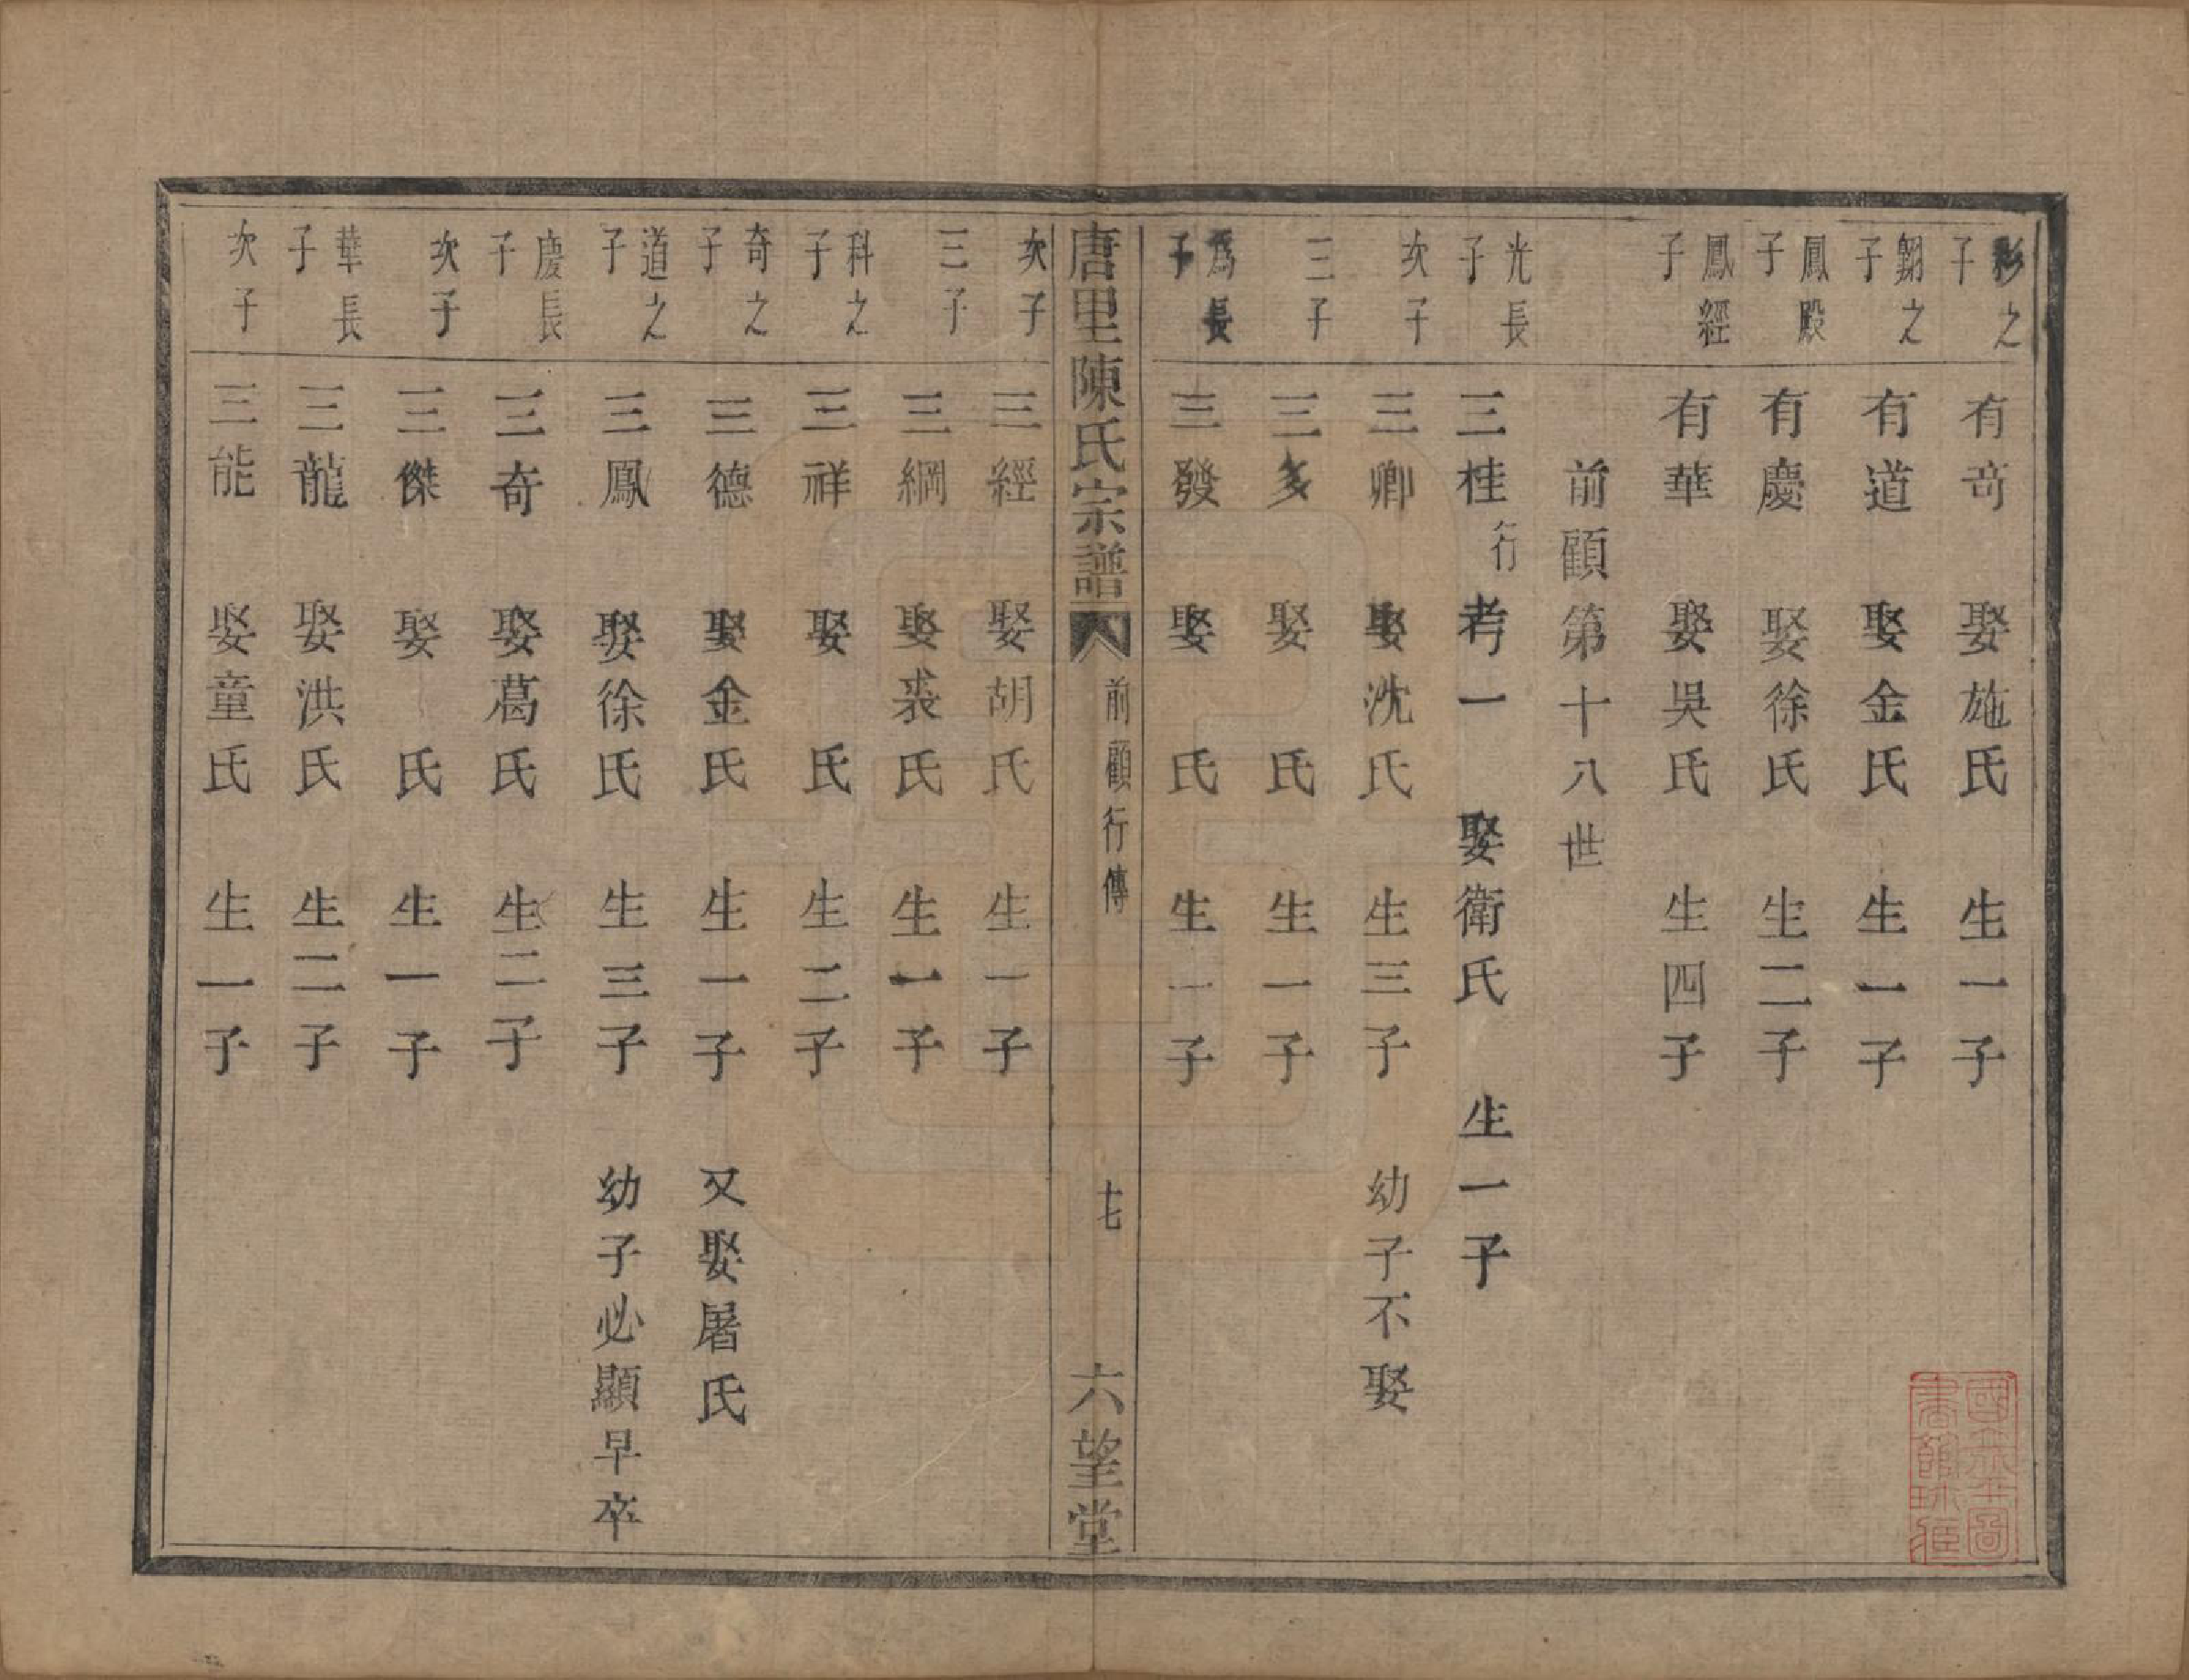 彰之子 有奇 娶施氏 生一子
翱之子 有道 娶金氏 生一子
鳳殿子 有慶 娶徐氏 生二子
鳳經子 有華 娶吳氏 生四子
前顧第十八世
光長子 三桂行考一 娶衛氏 生一子
次子 三卿 娶沈氏 生三子 幼子不娶
三子 三多 娶 氏 生一子
爲長子 三發 娶 氏 生一子
唐里陳氏宗譜 前顧行傳 十七 六望堂
次子 三經 娶胡氏 生一子
三子 三綱 娶裘氏 生一子
科之子 三祥 娶 氏 生二子
奇之子 三德 娶金氏 生一子 又娶屠氏
道之子 三鳳 娶徐氏 生三子 幼子必顯早卒
慶長子 三奇 娶葛氏 生二子
次子 三傑 娶 氏 生一子
華長子 三龍 娶洪氏 生二子
次子 三能 娶童氏 生一子